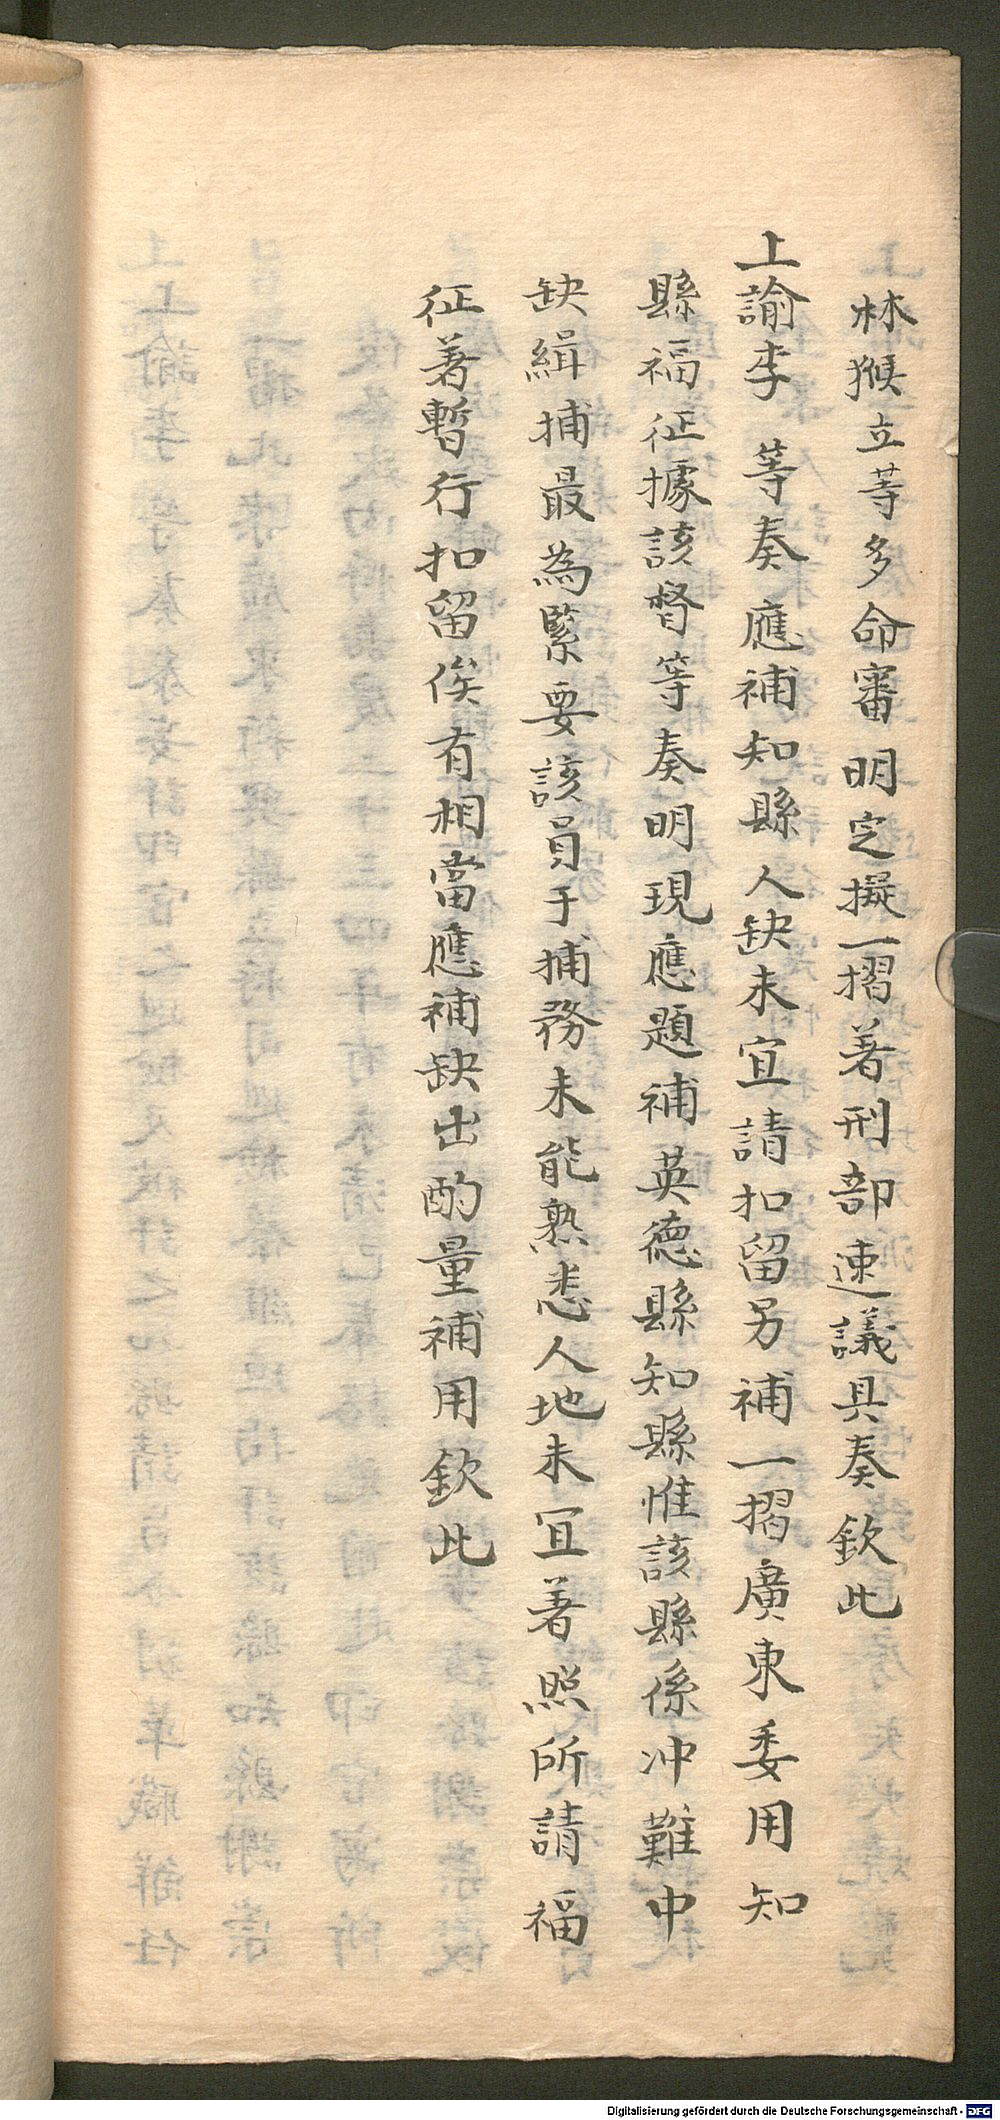 林猴立等多命審明定擬一摺著刑部速議具奏欽此
上諭李　等奏應補知縣人缺未宜請扣留另補一摺廣東委用知
縣福征據該督等奏明現應題補英德縣知縣惟該縣係冲難中
缺緝捕最為緊要該員于捕務未能熟悉人地未宜著照所請福
征著暫行扣留俟有相當應補缺出酌量補用欽此
Digitalisierung gefördert durch die Deutsche Forschungsgemeinschaft - DFG